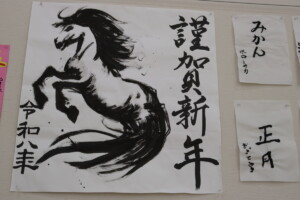 謹賀新年
令和八年
みかん
正月